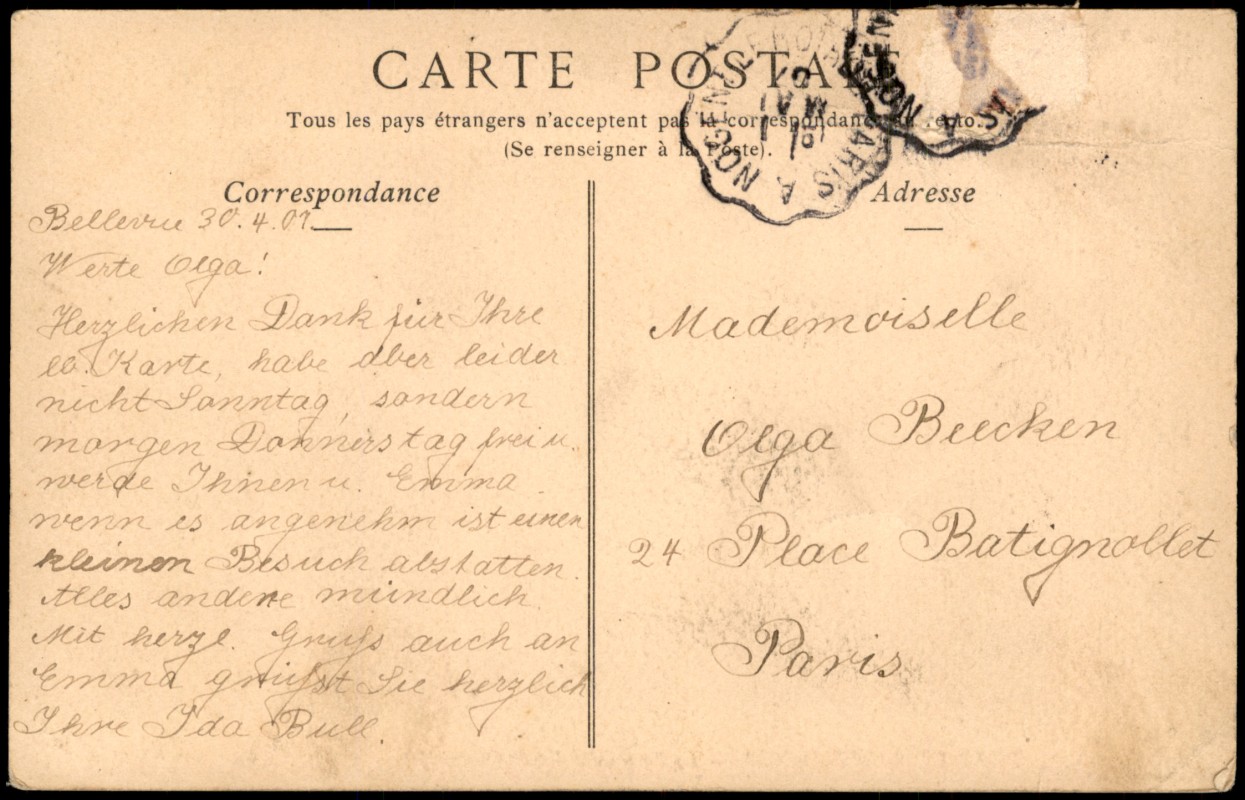 CARTE POSTALE
Tous les pays étrangers n'acceptent pas la correspondance au recto.
(Se renseigner à la Poste).
NOGENT LE ROTROU A PARIS
1
MAI
07
PARIS A NOGENT
Correspondance
Bellevue 30.4.07
Werte Olga!
Herzlichen Dank für Ihre
lb. Karte, habe aber leider
nicht Sonntag, sondern
morgen Donnerstag frei u.
werde Ihnen u. Emma
wenn es angenehm ist einen
kleinen Besuch abstatten.
Alles andere mündlich
Mit herzl. Gruß auch an
Emma grüßt Sie herzlich
Ihre Ida Bull.
Adresse
Mademoiselle
Olga Beecken
24 Place Batignollet
Paris